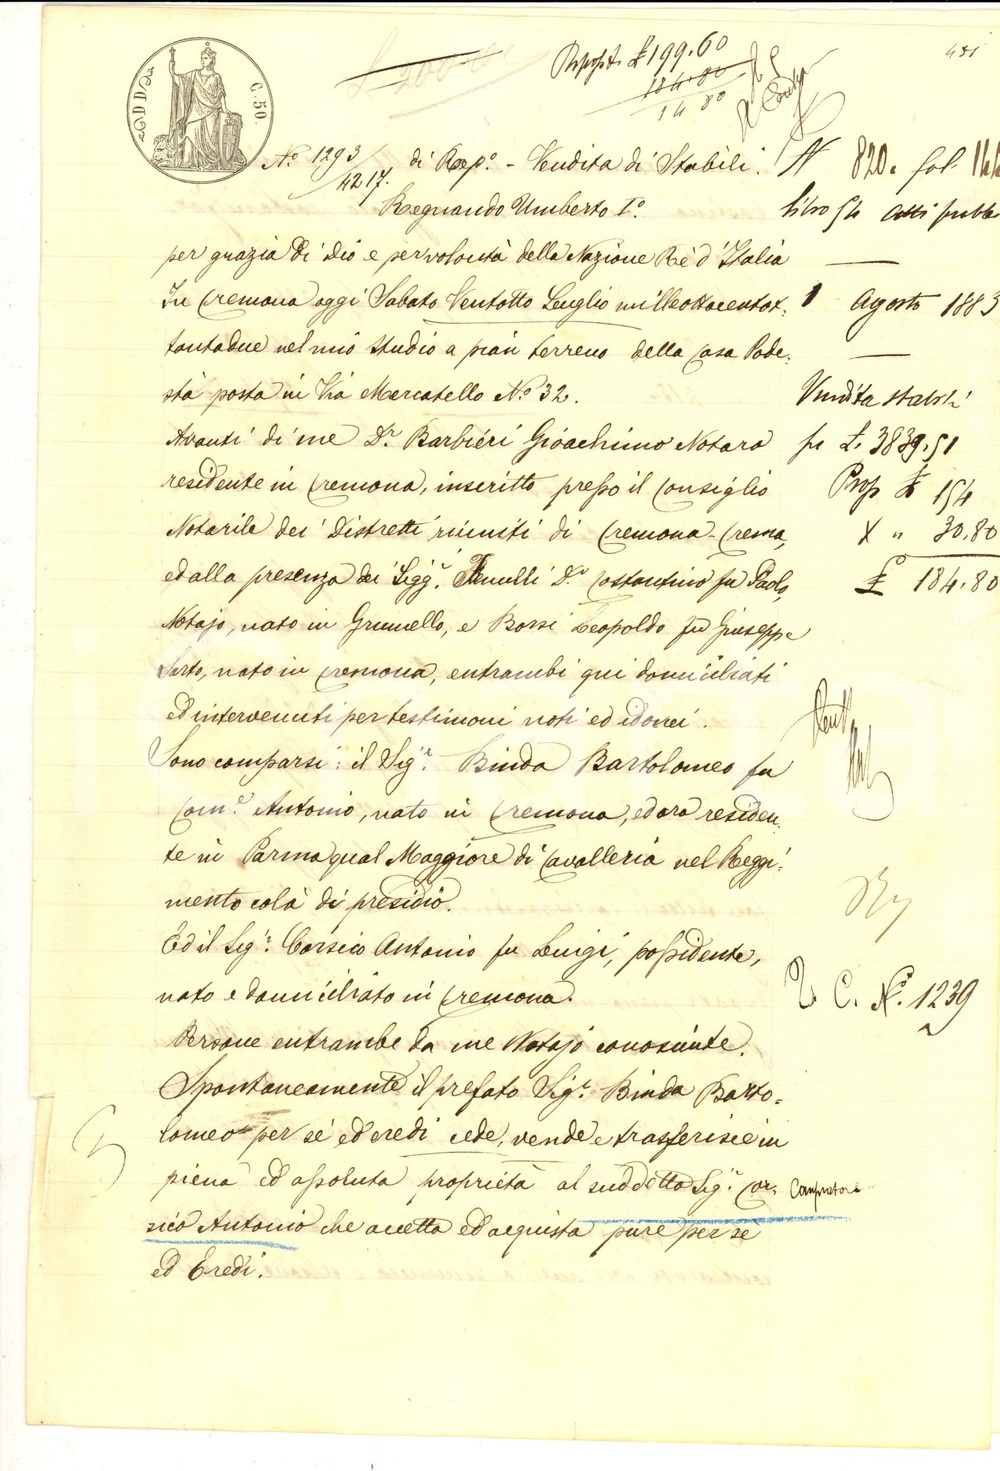 431
£ 200
Repert. £ 199.60
184.80
14 80
C. 50.
N.° 1293/4217. di Rep.° - Vendita di Stabili.
Regnando Umberto I.°
per grazia di Dio e per volontà della Nazione Rè d'Italia
In Cremona oggi Sabato Ventotto Luglio milleottocentot:
tantadue nel mio studio a pian terreno della Casa Pode:
stà posta in Via Mercatello N.° 32.
Avanti di me D.r Barbiéri Gioachimo Notaro
residente in Cremona, inscritto presso il Consiglio
Notarile dei Distretti riuniti di Cremona-Crema,
ed alla presenza dei Sigg.ri D.r Costantino fu Paolo,
Notajo, nato in Grumello, e Borsi Leopoldo fu Giuseppe
Sarto, nato in Cremona, entrambi qui domiciliati
ed intervenuti per testimoni noti ed idonei.
Sono comparsi: il Sig.r Binda Bartolomeo fu
Com.e Antonio, nato in Cremona, ed ora residen:
te in Parma qual Maggiore di Cavalleria nel Reggi:
mento colà di presidio.
Ed il Sig.r Corsico Antonio fu Luigi, possidente,
nato e domiciliato in Cremona.
Persone entrambe da me Notajo conosciute.
Spontaneamente il prefato Sig.r Binda Barto-
lomeo per sé ed eredi cede, vende e trasferisce in
piena ed assoluta proprietà al suddetto Sig.r Cor:
sico Antonio che accetta ed acquista pure per sé
ed Eredi.
N 820. fol.
libro 54 atti pubb
1 Agosto 1883
Vendita stabili
per £. 3839.51
Prop £ 154
X " 30.80
£ 184.80
C. N.° 1239
Compratore